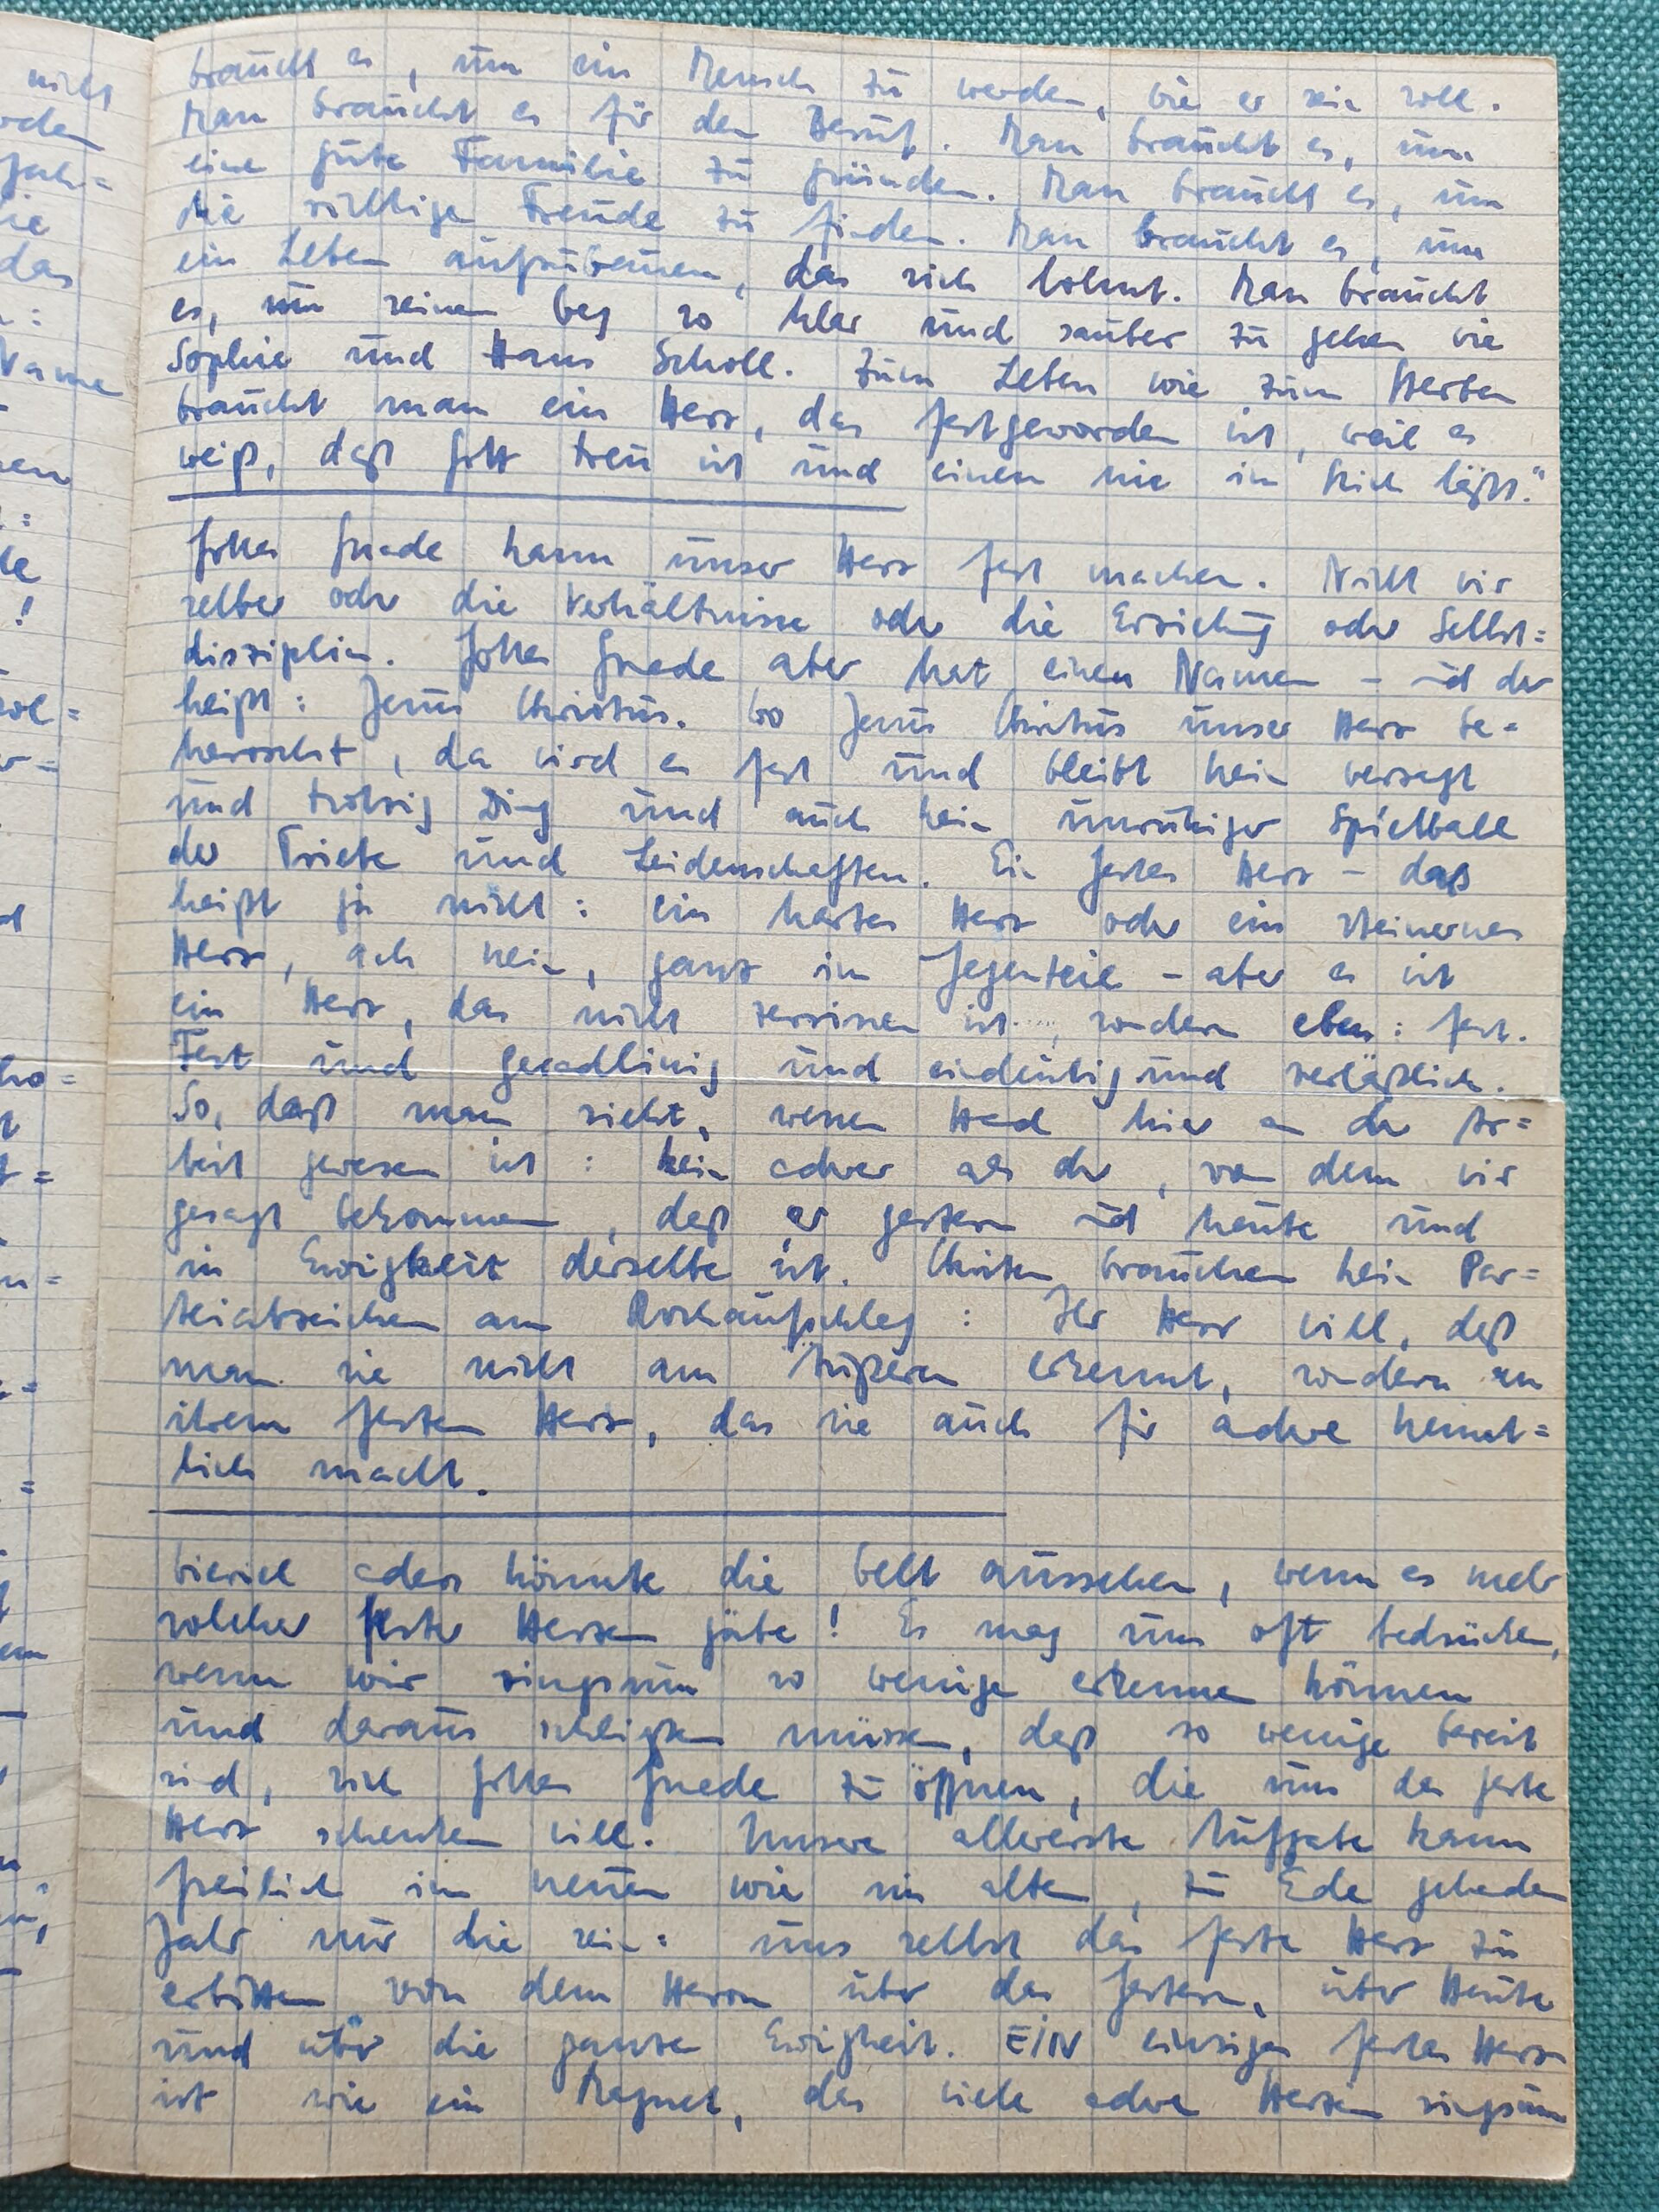 nicht
braucht es, um ein Mensch zu werden, wie er sein soll.
Man braucht es für den Beruf. Man braucht es, um
eine gute Familie zu gründen. Man braucht es, um
die richtige Freude zu finden. Man braucht es, um
ein Leben aufzubauen, das sich lohnt. Man braucht
es, um seinen Weg so klar und sauber zu gehen wie
Sophie und Hans Scholl. Zum Leben wie zum Sterben
braucht man ein Herz, das festgeworden ist, weil es
weiß, daß Gott treu ist und einen nie im Stich läßt."
Gottes Gnade kann unser Herz fest machen. Nicht wir
selber oder die Verhältnisse oder die Erziehung oder Selbst=
disziplin. Gottes Gnade aber hat einen Namen – und der
heißt: Jesus Christus. Wo Jesus Christus unser Herz be=
herrscht, da wird es fest und bleibt kein verzagt
und trotzig Ding und auch kein unruhiger Spielball
der Triebe und Leidenschaften. Ein festes Herz – das
heißt ja nicht: ein hartes Herz oder ein steinernes
Herz, ach nein, ganz im Gegenteil – aber es ist
ein Herz, das nicht zerrissen ist, sondern eben: fest.
Fest und geradlinig und eindeutig und verläßlich.
So, daß man sieht, wessen Hand hier an der Ar=
beit gewesen ist: kein andrer als der, von dem wir
gesagt bekommen, daß er gestern und heute und
in Ewigkeit derselbe ist. Christen brauchen kein Par=
teiabzeichen am Rockaufschlag: Ihr Herr will, daß
man sie nicht am Äußern erkennt, sondern an
ihrem festen Herz, das sie auch für andre kennt=
lich macht.
Wieviel anders könnte die Welt aussehen, wenn es mehr
solcher fester Herzen gäbe! Es mag uns oft bedrücken,
wenn wir ringsum so wenige erkennen können
und daraus schließen müssen, daß so wenige bereit
sind, sich Gottes Gnade zu öffnen, die uns das feste
Herz schenken will. Unsere allererste Aufgabe kann
freilich im neuen wie im alten, zu Ende gehenden
Jahr nur die sein: uns selbst das feste Herz zu
erbitten von dem Herrn über das Gestern, über Heute
und über die ganze Ewigkeit. EIN einziges festes Herz
ist wie ein Magnet, das viele andre Herzen ringsum